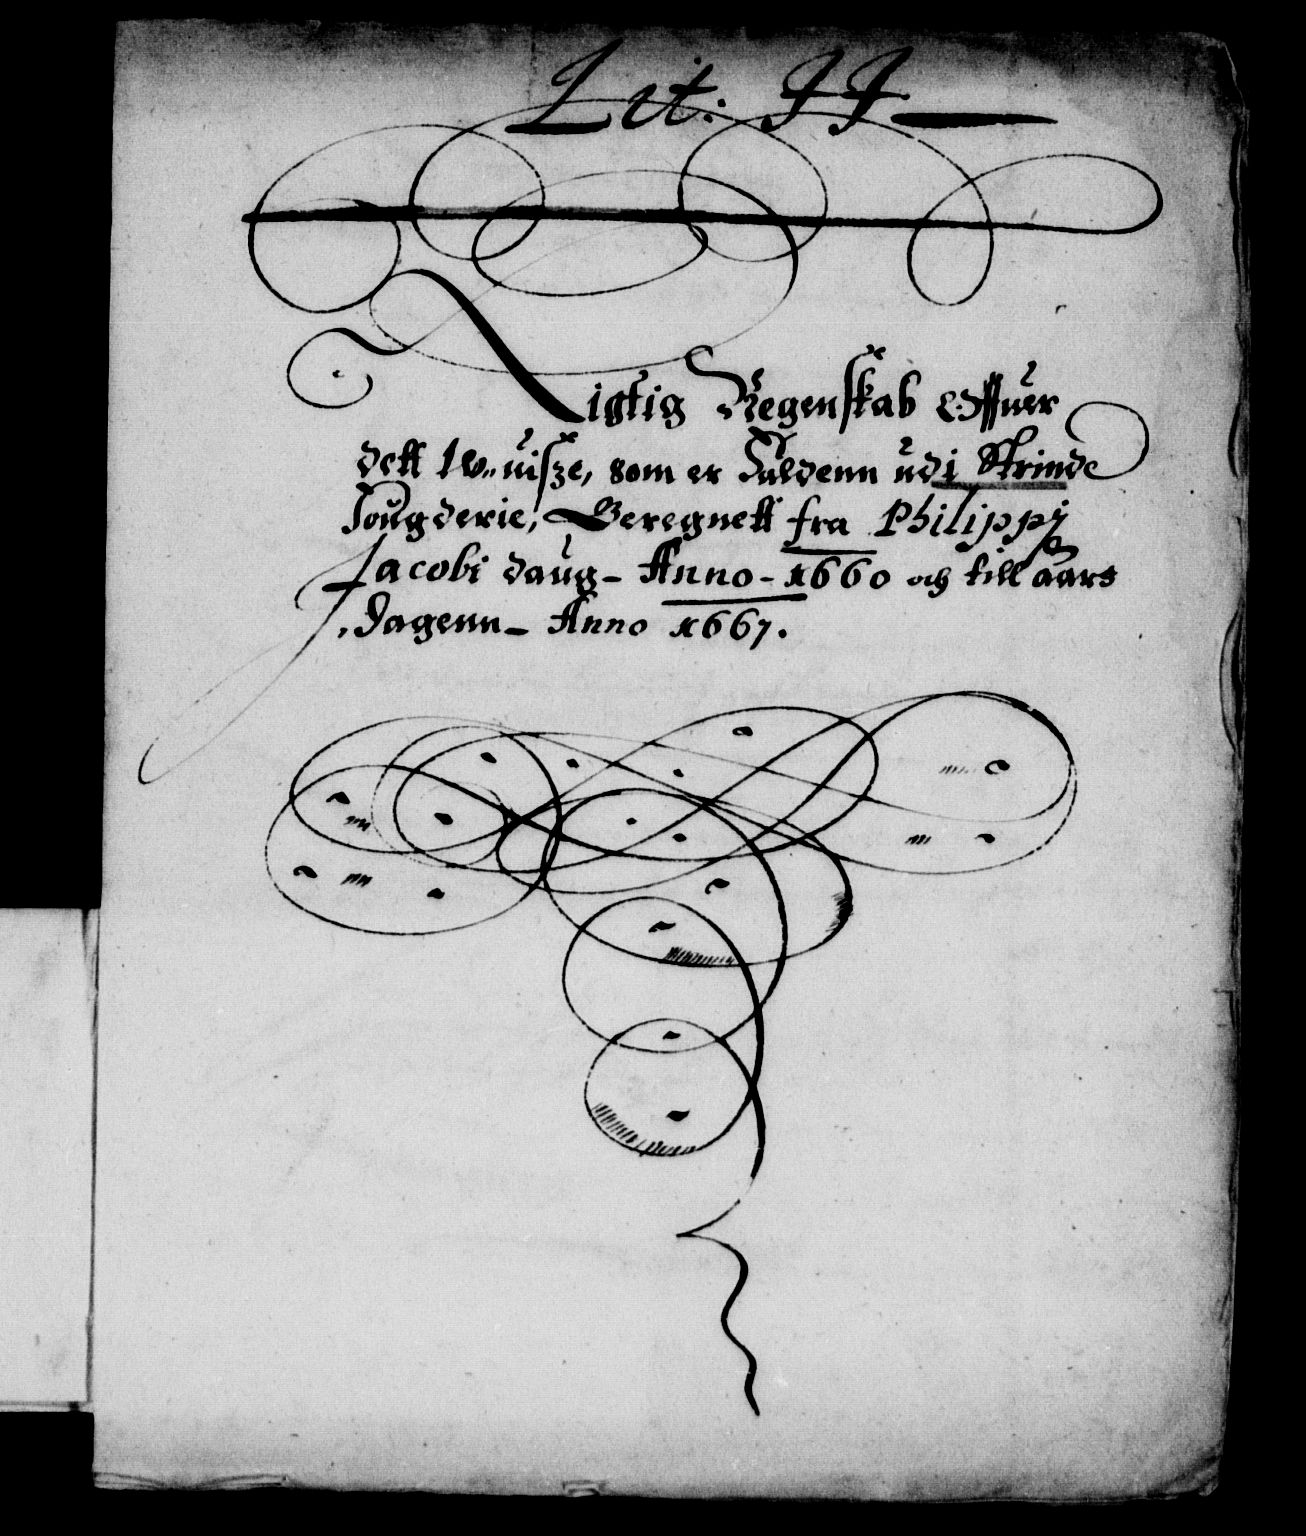 Lit: JJ
Rigtig Regenskab Offuer
dett Wuisze, som er Faldenn udj Strinde
Fougderie, Beregnett fra Philippj
Jacobi daug Anno 1660 och till aars
Dagenn Anno 1661.